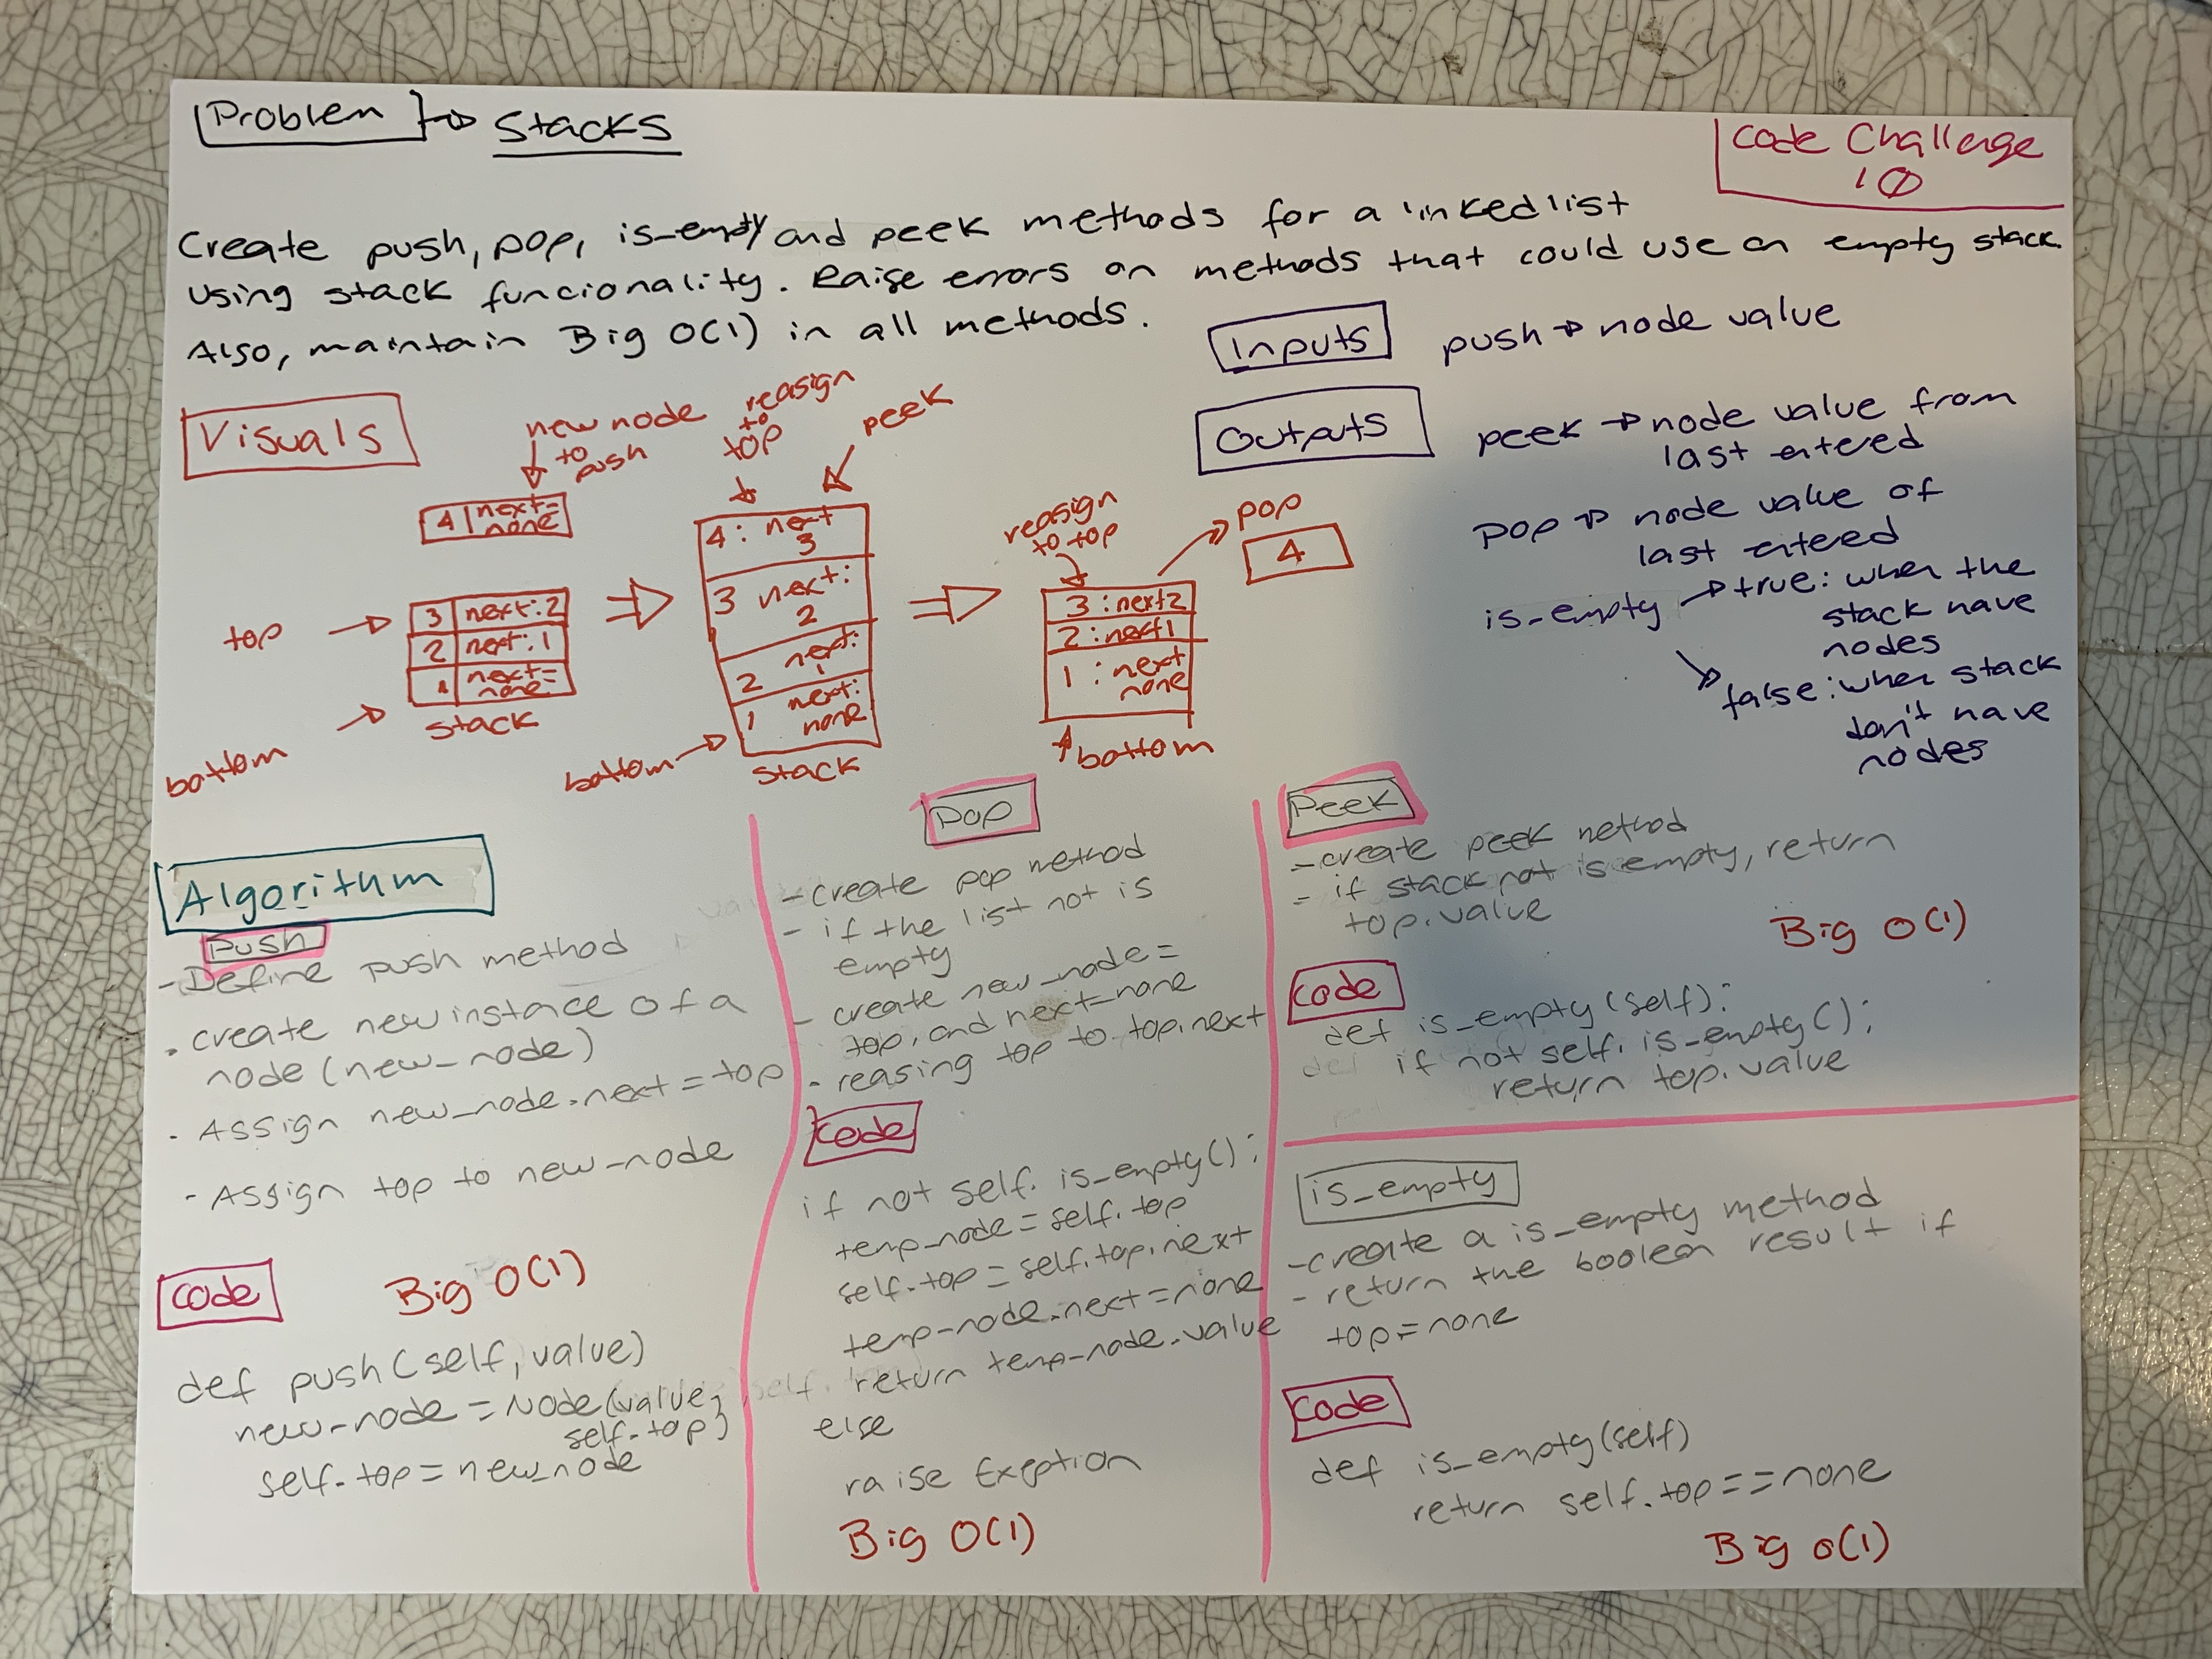 Problem → Stacks
Code Challenge
10
Create push, pop, is_empty and peek methods for a linked list
using stack funcionality. Raise errors on methods that could use an empty stack.
Also, maintain Big O(1) in all methods.
Inputs
push → node value
Outputs
peek → node value from
last entered
pop → node value of
last entered
is_empty → true: when the
stack have
nodes
false: when stack
don't have
nodes
Visuals
new node
to
push
4 | next=
none
top
3 | next:2
2 | next:1
1 | next=
none
stack
bottom
reasign
to
top
peek
4: next
3
3 next:
2
2 next:
1
1 next:
none
bottom
stack
reasign
to top
pop
4
3 : next2
2 : next1
1 : next
none
bottom
Algoritum
Push
- Define push method
. create new instace of a
node (new_node)
- Assign new_node.next = top
- Assign top to new-node
Code
Big O(1)
def push(self, value)
new-node = Node(value,
self.top)
self.top = new_node
Pop
- create pop method
- if the list not is
empty
- create new_node =
top, and next=none
- reasing top to top.next
Code
if not self. is_empty():
temp_node = self.top
self.top = self.top.next
temp-node.next = none
return temp-node.value
else
raise Exeption
Big O(1)
Peek
- create peek method
- if stack not is empty, return
top.value
Big O(1)
Code
def is_empty (self):
if not self. is_empty():
return top.value
is_empty
- create a is_empty method
- return the boolean result if
top = none
Code
def is_empty(self)
return self.top == none
Big O(1)